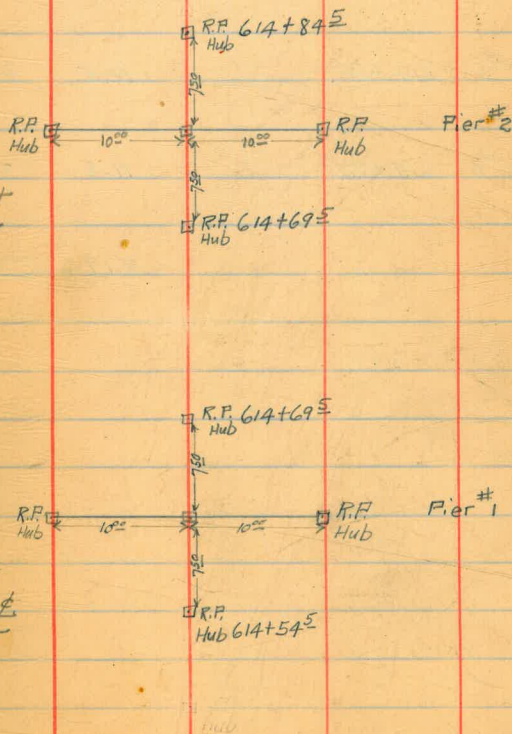 R.P. 614+84⁵
Hub
7⁵⁰
R.P.
Hub
10⁰⁰
10⁰⁰
R.P.
Hub
Pier #2
7⁵⁰
R.P. 614+69⁵
Hub
R.P. 614+69⁵
Hub
7⁵⁰
R.P.
Hub
10⁰⁰
10⁰⁰
R.P.
Hub
Pier #1
7⁵⁰
℄
R.P.
Hub 614+54⁵
Hub